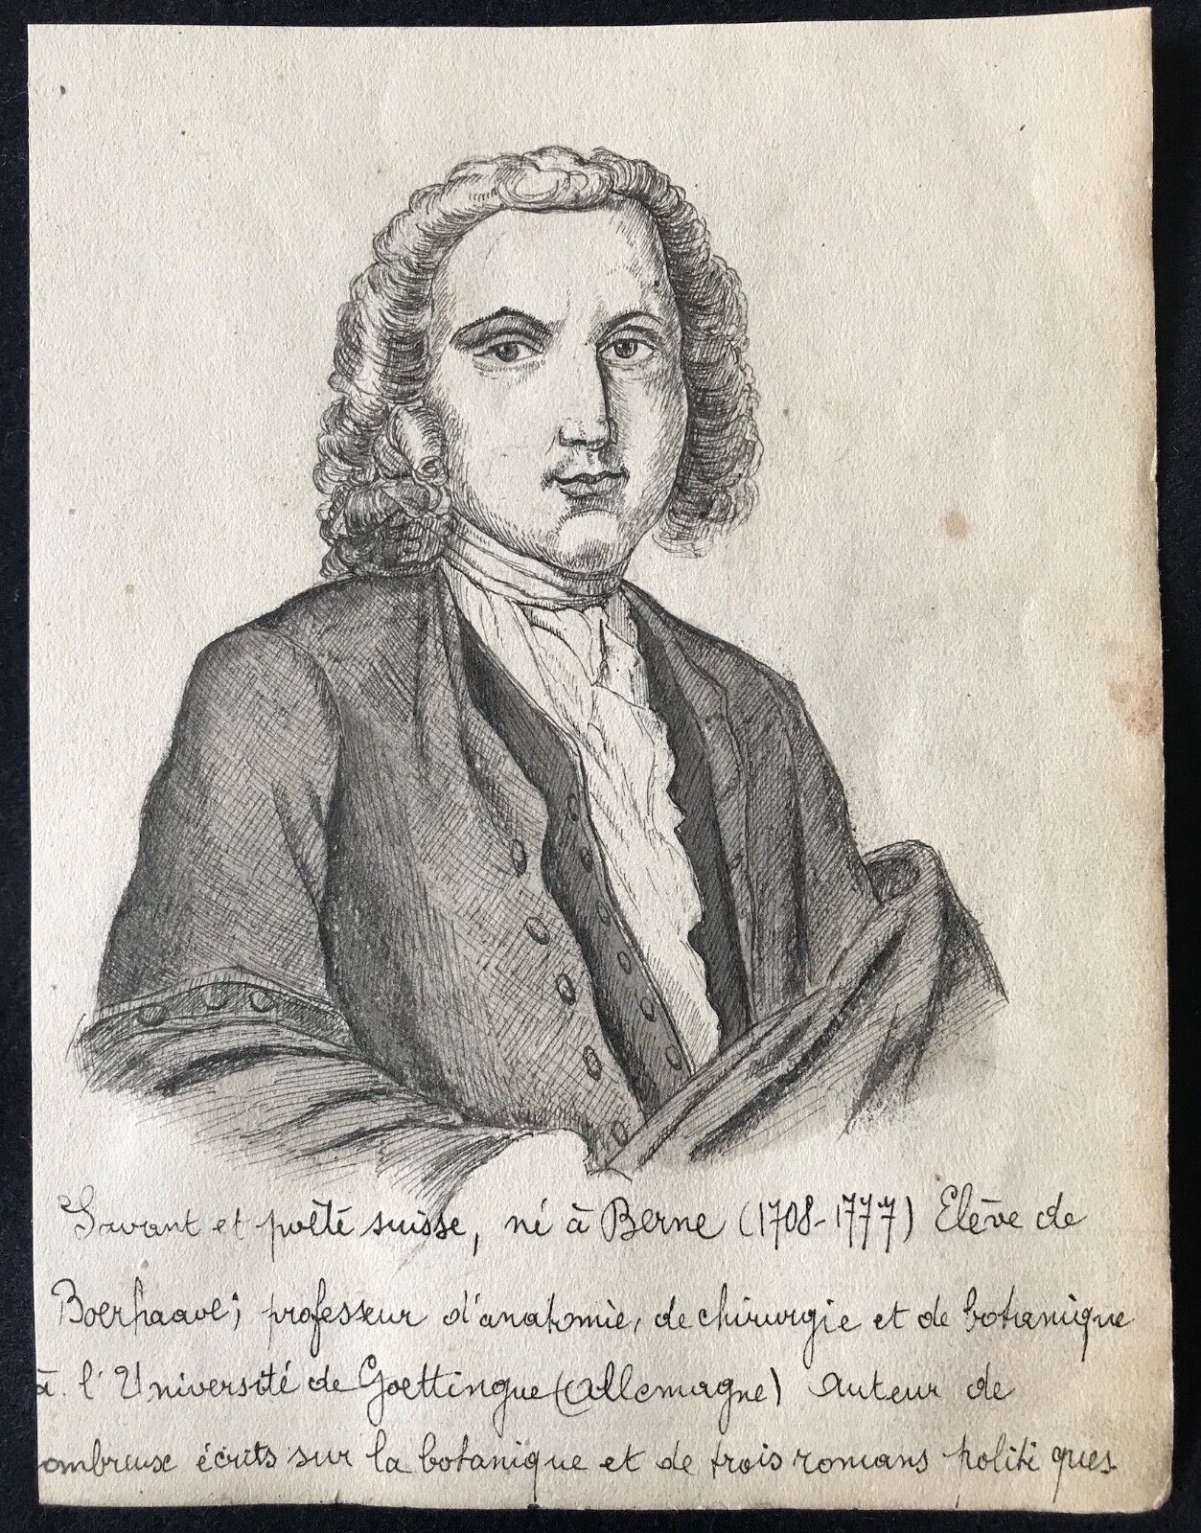 Savant et poète suisse, né à Berne (1708-1777) Elève de
Boerhaave; professeur d'anatomie, de chirurgie et de botanique
à l'Université de Goettingue (Allemagne) Auteur de
ombreux écrits sur la botanique et de trois romans politiques